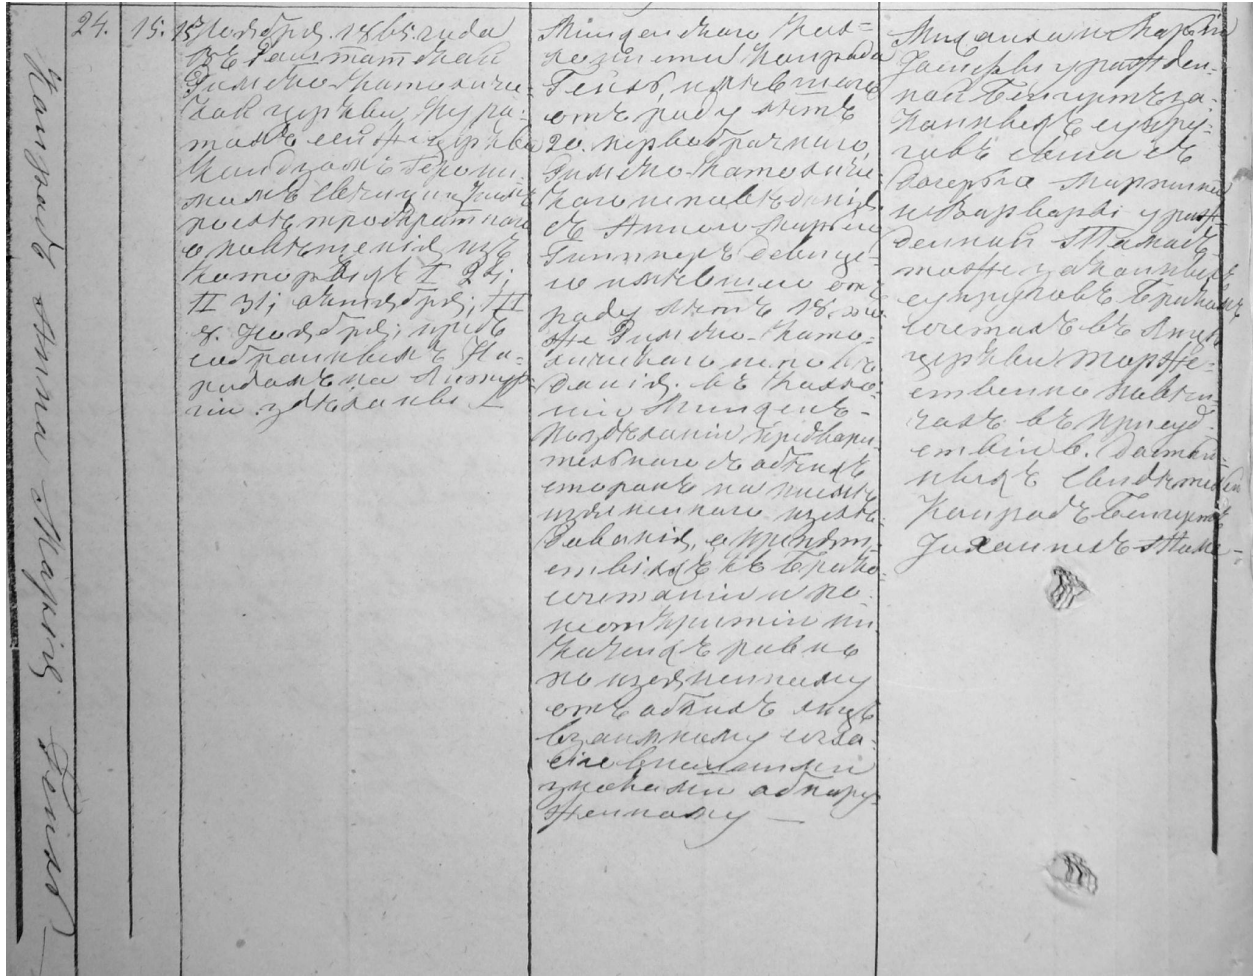 Конрадъ Анна Марія Гейль
24.
15.
15 Ноября 1865 года
въ
Римско-Католиче-
ской церкви, Кура-
томъ сей же церкви
Ксендзомъ Герони-
момъ
послѣ троекратнаго
оповѣщенія, изъ
которыхъ I 24;
II 31; октября; III
8. Ноября; предъ
собраннымъ На-
родомъ на Литур-
гіи сдѣланы
Минденскаго Кол-
лониста Конрада
Гейль, имѣвшаго
отъ роду лѣтъ
20. первобрачнаго,
Римско-Католиче-
скаго исповѣданія
съ Анною Маріею
девице-
ю имѣвшею отъ
роду лѣтъ 18.
же Римско-Като-
лическаго исповѣ-
данія. въ Колло-
ніи Минденъ
по сдѣланіи предвари-
тельнаго съ обѣихъ
сторонъ на письмѣ
изъясненнаго изслѣ-
дованія, о препят-
ствіяхъ къ Брако-
сочетанію и по
неоткрытіи ни-
какихъ равно
по изъясненному
отъ обѣихъ лицъ
взаимному согла-
сію внешними
знаками обнару-
женному
Михаила и Маріи
урожден-
ной Бенгертъ за-
конныхъ супру-
говъ сына съ
дочерью Мартина
и Варвары урож-
денной
тоже законныхъ
супруговъ Бракомъ
сочеталъ въ лицѣ
церкви торже-
ственно повѣн-
чалъ въ присуд-
ствіи б. достой-
ныхъ свидѣтелей
Конрадъ Бенгертъ
Іоханнесъ